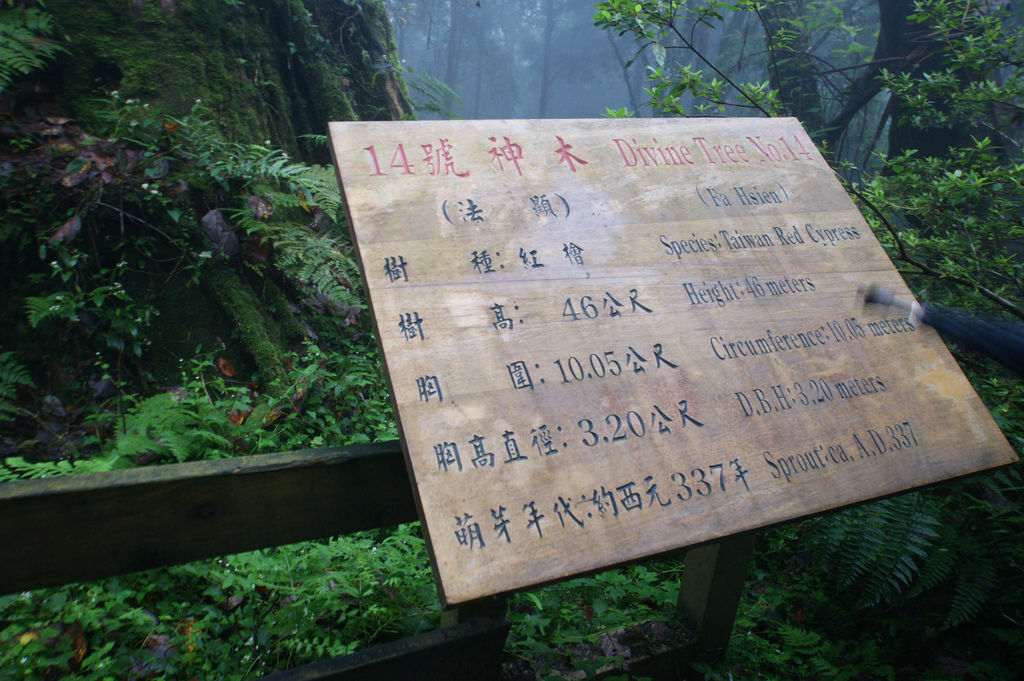 14號神木 Divine Tree No.14
(法 顯) (Fa Hsien)
樹 種:紅檜 Species:Taiwan Red Cypress
樹 高: 46公尺 Height:46 meters
胸 圍:10.05公尺 Circumference:10.05 meters
胸高直徑:3.20公尺 D.B.H:3.20 meters
萌芽年代:約西元337年 Sprout:ca. A.D.337